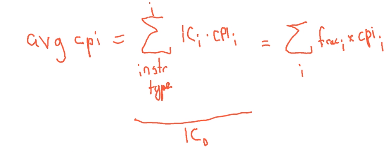 avg cpi = \sum_{instr type}^{i} IC_i · CPI_i = \sum_i frac_i × cpi_i
IC_D